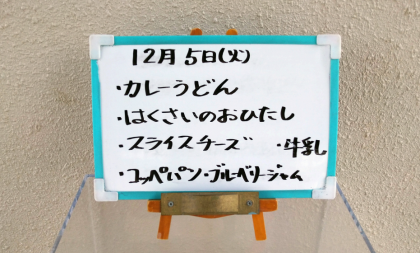 12月5日(火)
・カレーうどん
・はくさいのおひたし
・スライスチーズ ・牛乳
・コッペパン・ブルーベリージャム